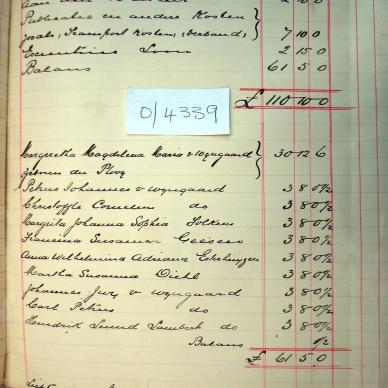 Publicatie en andere Kosten
Transport Kosten, Verband, 7 10 0
Executeurs Loon 2 15 0
Balans 61 5 0
£ 110 10 0
0/4339
Margeretha Magdelena Maria v Wyngaard 30 12 6
geboren du Plooy
Petrus Johannes v Wyngaard 3 8 0½
Christoffle Cornelius do 3 8 0½
Margrita Johanna Sophia 3 8 0½
Francina Susanna 3 8 0½
Anna Wilhelmina Adriana Esterhuyzen 3 8 0½
Martha Susanna Diehl 3 8 0½
Johannes Jury v Wyngaard 3 8 0½
Carl Petrus do 3 8 0½
Hendrik do 3 8 0½
Balans ½
£ 61 5 0